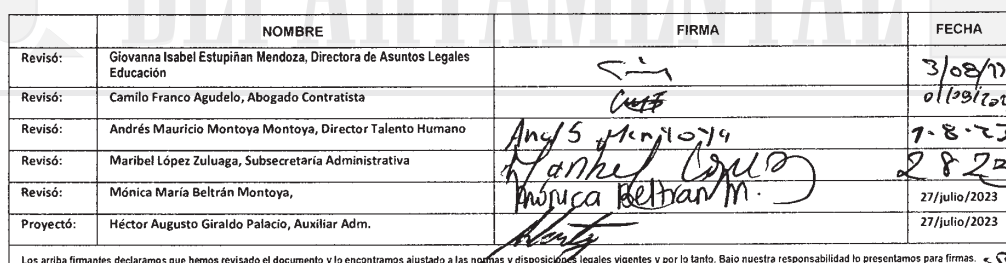 DEPARTAMENTAL
NOMBRE FIRMA FECHA
Revisó: Giovanna Isabel Estupiñan Mendoza, Directora de Asuntos Legales
Educación
3/08/23
Revisó: Camilo Franco Agudelo, Abogado Contratista
Revisó: Andrés Mauricio Montoya Montoya, Director Talento Humano Andrés Montoya 1.8.23
Revisó: Maribel López Zuluaga, Subsecretaría Administrativa Maribel López 2 8 23
Revisó: Mónica María Beltrán Montoya, Mónica Beltrán M. 27/julio/2023
Proyectó: Héctor Augusto Giraldo Palacio, Auxiliar Adm. 27/julio/2023
Los arriba firmantes declaramos que hemos revisado el documento y lo encontramos ajustado a las normas y disposiciones legales vigentes y por lo tanto. Bajo nuestra responsabilidad lo presentamos para firmas.